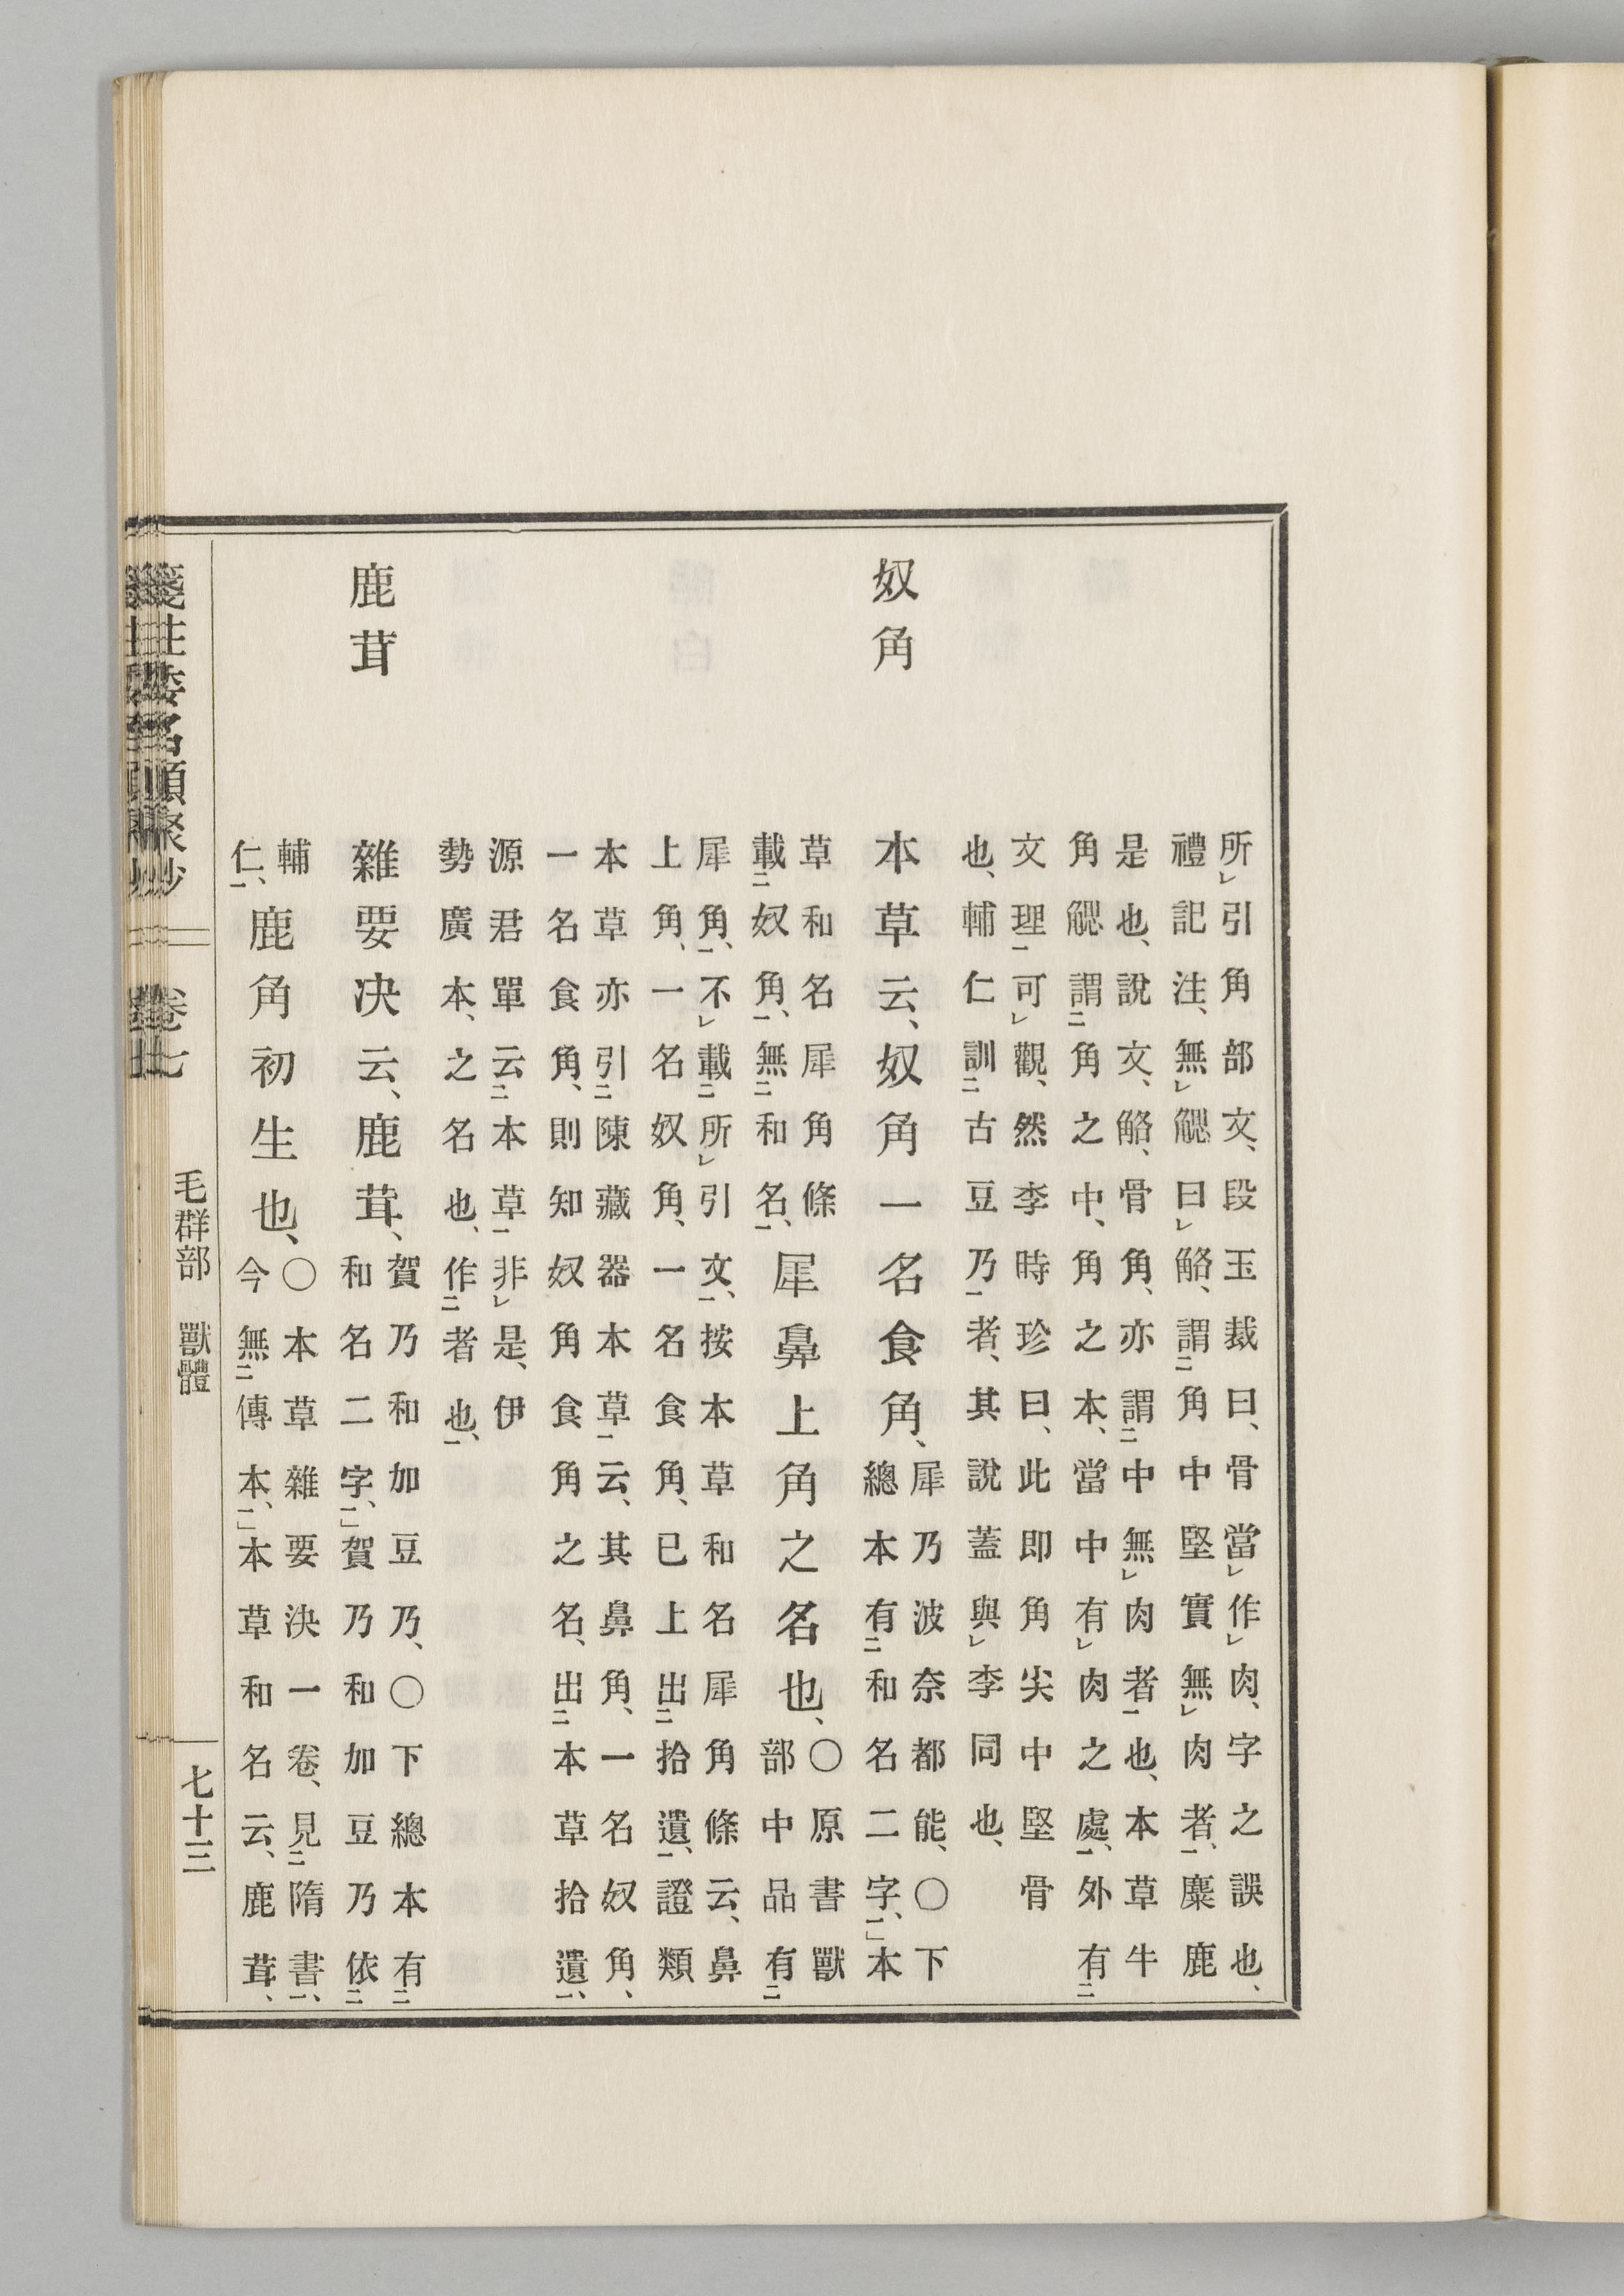 所㆑引角部文、段玉裁曰、骨當㆑作㆑肉、字之誤也、
禮記注、無㆑䚡曰㆑觡、謂㆓角中堅實無㆑肉者㆒、麋鹿
是也、說文、觡、骨角、亦謂㆓中無㆑肉者㆒也、本草牛
角䚡謂㆓角之中、角之本、當中有㆑肉之處㆒、外有㆓
文理㆒可㆑觀、然李時珍曰、此即角尖中堅骨
也、輔仁訓㆓古豆乃㆒者、其說蓋與㆑李同也、
奴角
本草云、奴角一名食角、
犀乃波奈都能、〇下
總本有㆓和名二字㆒、」本
草和名犀角條
載㆓奴角㆒、無㆓和名㆒、
犀鼻上角之名也、
〇原書獸
部中品有㆓
犀角㆒、不㆑載㆓所㆑引文㆒、按本草和名犀角條云、鼻
上角、一名奴角、一名食角、已上出㆓拾遺㆒、證類
本草亦引㆓陳藏器本草㆒云、其鼻角、一名奴角、
一名食角、則知奴角食角之名、出㆓本草拾遺㆒、
源君單云㆓本草㆒非㆑是、伊
勢廣本、之名也、作㆓者也㆒、
鹿茸
雜要决云、鹿茸、
賀乃和加豆乃、〇下總本有㆓
和名二字㆒、」賀乃和加豆乃依㆓
輔
仁㆒、
鹿角初生也、
〇本草雜要決一卷、見㆓隋書㆒、
今無㆓傳本㆒、」本草和名云、鹿茸、
箋注倭名類聚抄
卷七
毛群部 獸體
七十三